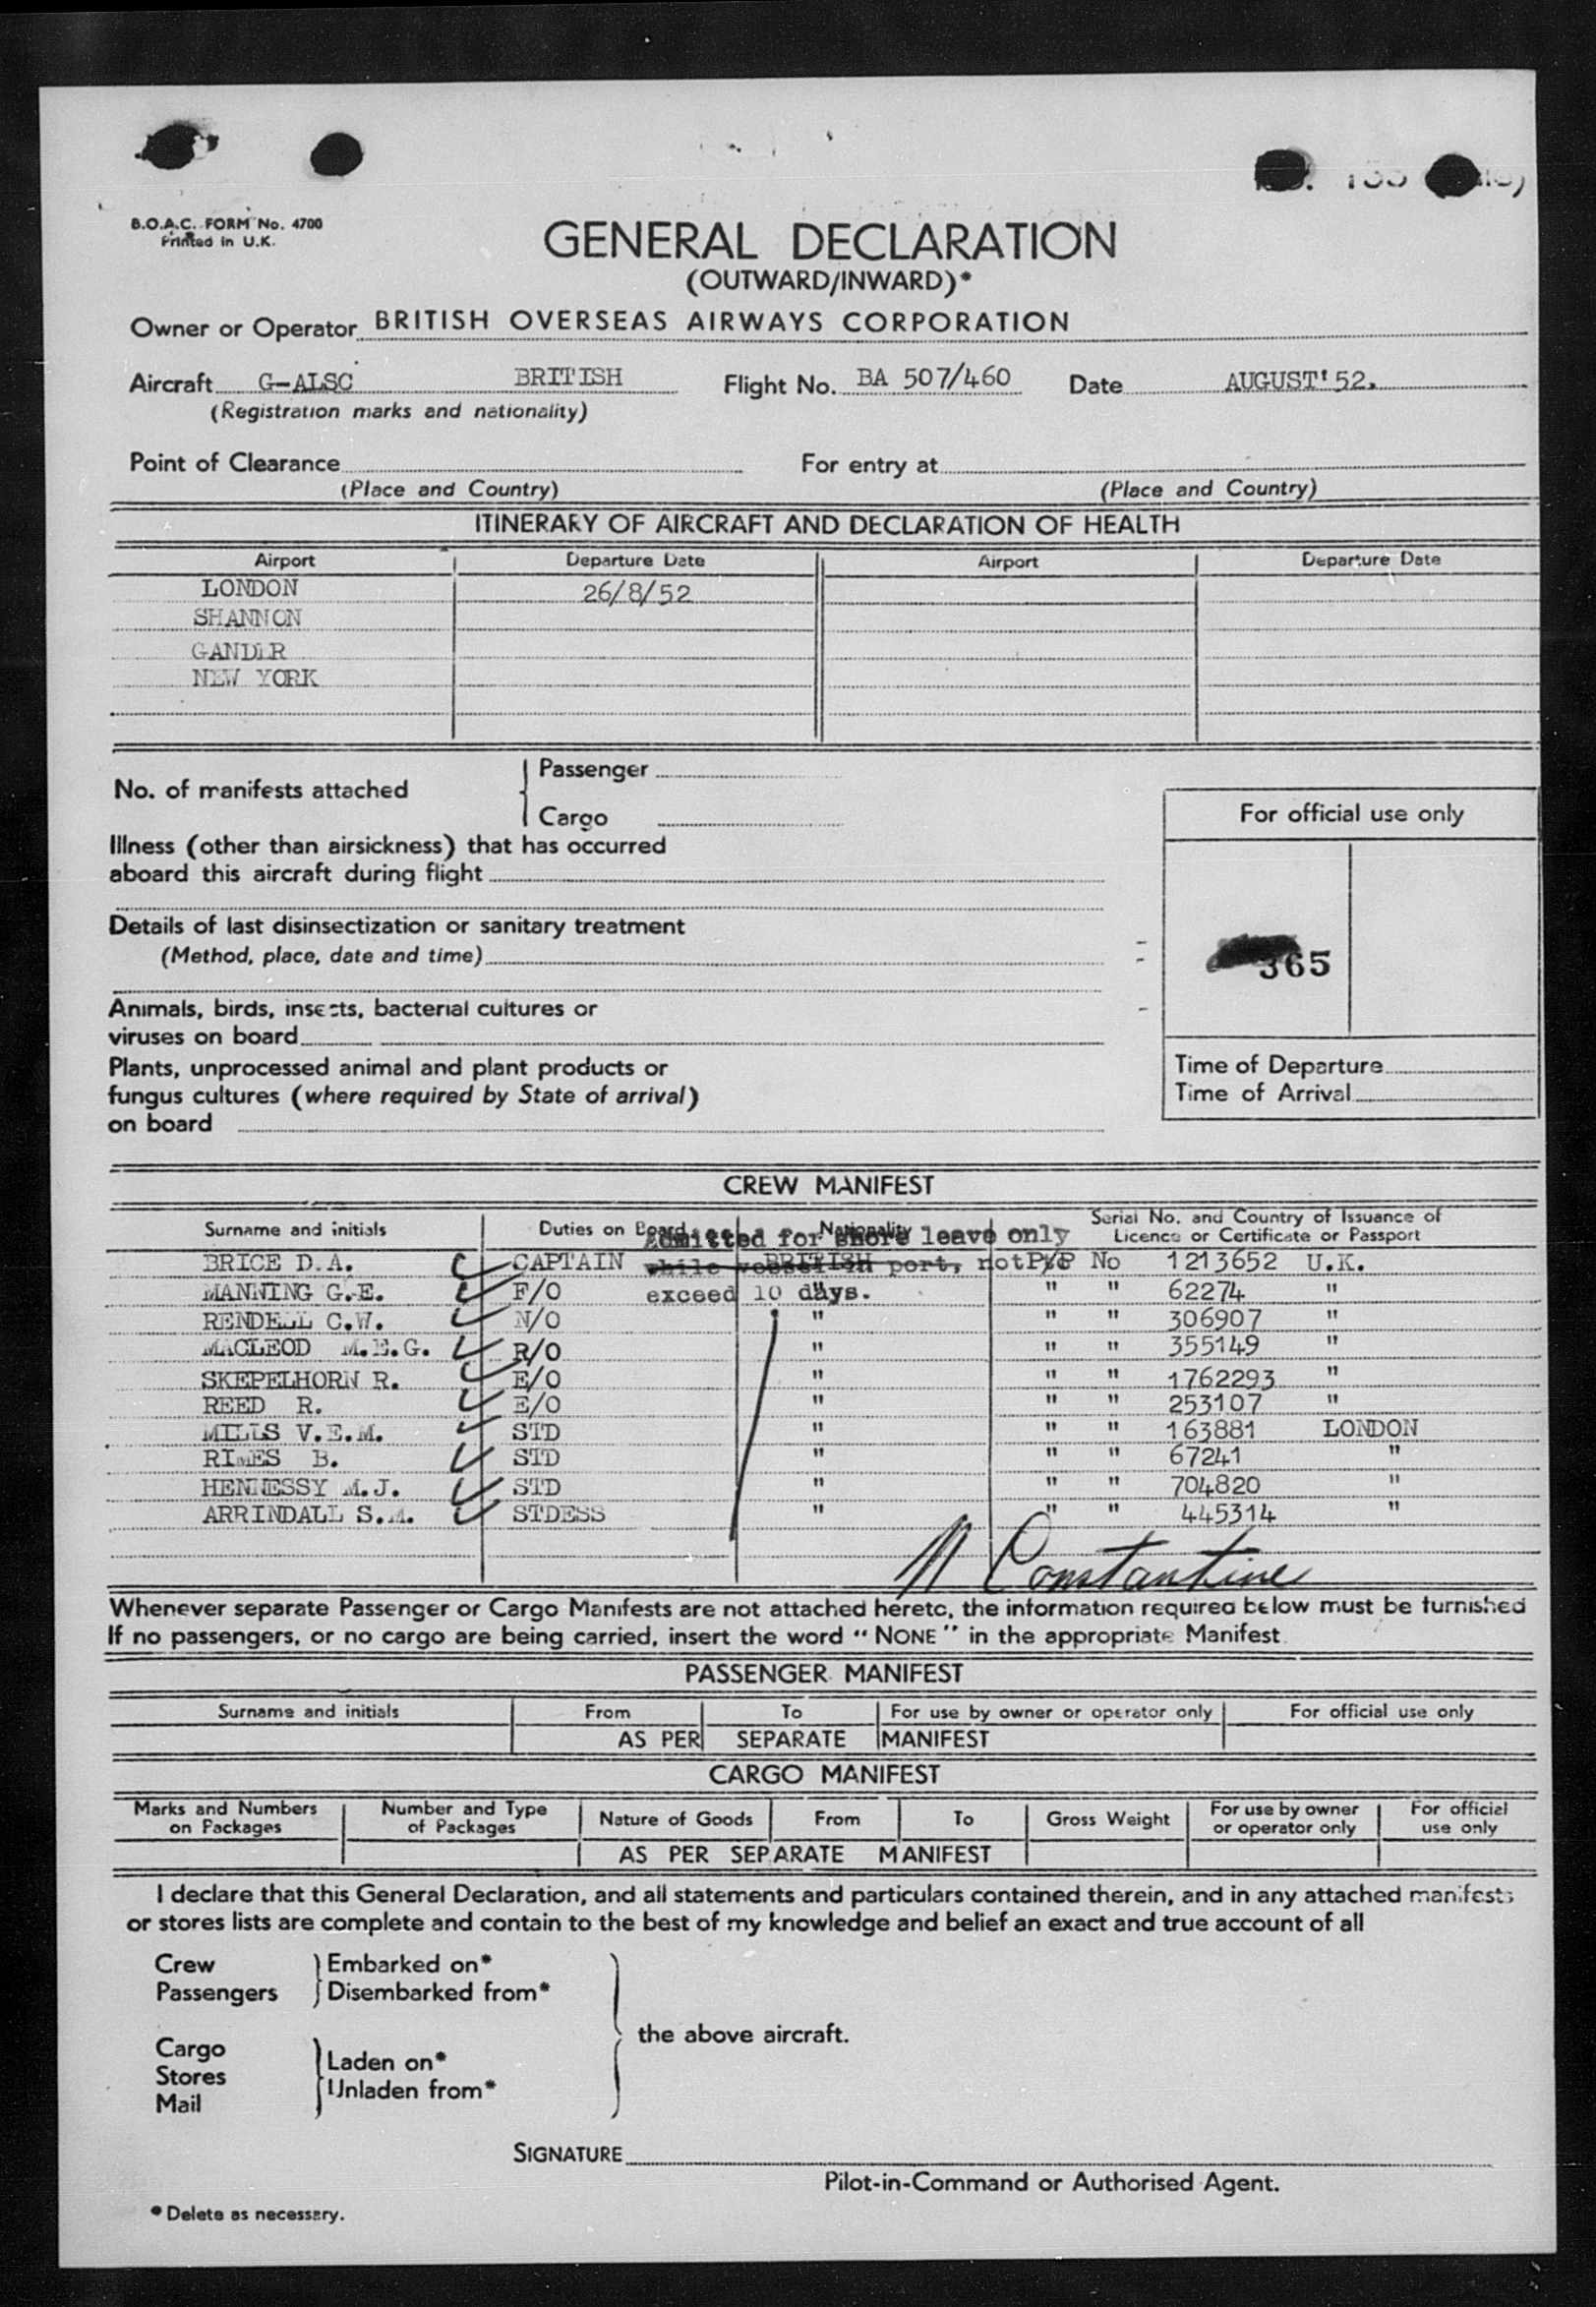 B.O.A.C. FORM No. 4700
Printed in U.K.
GENERAL DECLARATION
(OUTWARD/INWARD)*
Owner or Operator BRITISH OVERSEAS AIRWAYS CORPORATION
Aircraft G-ALSC BRITISH Flight No. BA 507/460 Date AUGUST'52.
(Registration marks and nationality)
Point of Clearance For entry at
(Place and Country) (Place and Country)
ITINERARY OF AIRCRAFT AND DECLARATION OF HEALTH
Airport Departure Date Airport Departure Date
LONDON 26/8/52
SHANNON
GANDER
NEW YORK
No. of manifests attached
Passenger
Cargo
For official use only
Illness (other than airsickness) that has occurred
aboard this aircraft during flight
Details of last disinsectization or sanitary treatment
(Method, place, date and time)
365
Animals, birds, insects, bacterial cultures or
viruses on board
Plants, unprocessed animal and plant products or
fungus cultures (where required by State of arrival)
on board
Time of Departure
Time of Arrival
CREW MANIFEST
Surname and initials Duties on Board Nationality Serial No. and Country of Issuance of
Licence or Certificate or Passport
Admitted for shore leave only
while vessel in port, not
exceed 10 days.
BRICE D.A. CAPTAIN BRITISH P/P No 1213652 U.K.
MANNING G.E. F/O " " " 62274 "
RENDELL C.W. N/O " " " 306907 "
MACLEOD M.E.G. R/O " " " 355149 "
SKEPELHORN R. E/O " " " 1762293 "
REED R. E/O " " " 253107 "
MILLS V.E.M. STD " " " 163881 LONDON
RIMES B. STD " " " 67241 "
HENNESSY M.J. STD " " " 704820 "
ARRINDALL S.M. STDESS " " " 445314 "
N Constantine
Whenever separate Passenger or Cargo Manifests are not attached hereto, the information required below must be furnished
If no passengers, or no cargo are being carried, insert the word "NONE" in the appropriate Manifest.
PASSENGER MANIFEST
Surname and initials From To For use by owner or operator only For official use only
AS PER SEPARATE MANIFEST
CARGO MANIFEST
Marks and Numbers on Packages Number and Type of Packages Nature of Goods From To Gross Weight For use by owner or operator only For official use only
AS PER SEPARATE MANIFEST
I declare that this General Declaration, and all statements and particulars contained therein, and in any attached manifests
or stores lists are complete and contain to the best of my knowledge and belief an exact and true account of all
Crew Embarked on*
Passengers Disembarked from*
the above aircraft.
Cargo
Laden on*
Stores
Unladen from*
Mail
SIGNATURE
Pilot-in-Command or Authorised Agent.
* Delete as necessary.